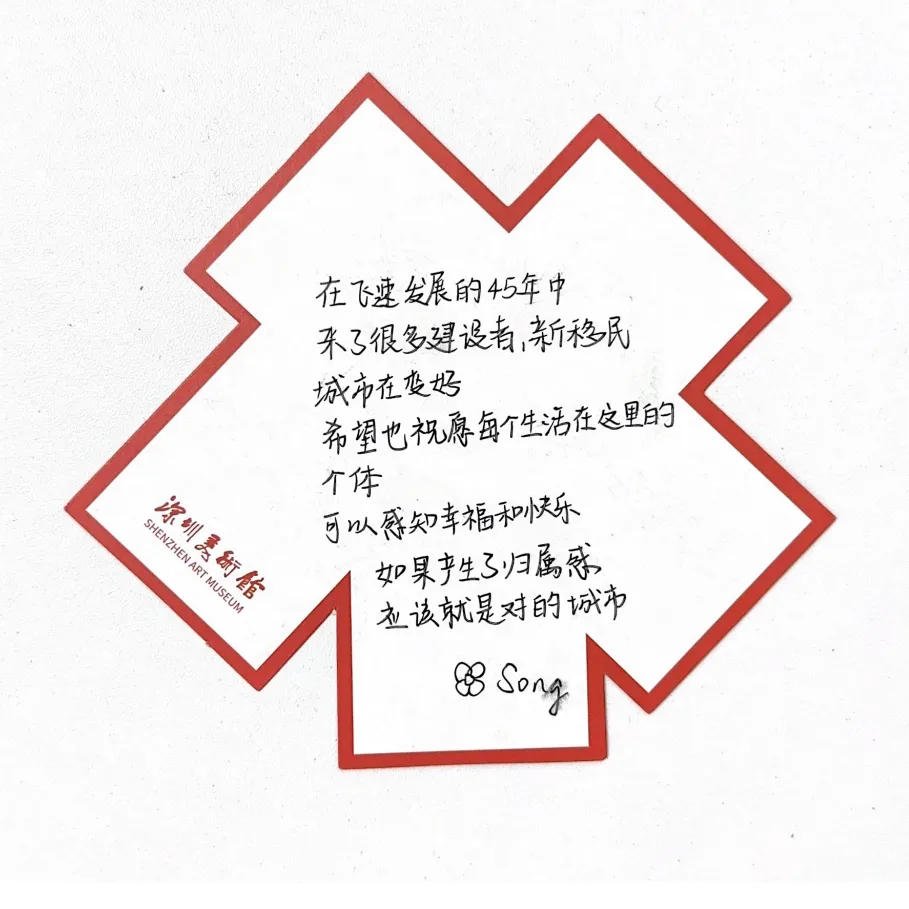 在飞速发展的45年中
来了很多建设者,新移民
城市在变好
希望也祝愿每个生活在这里的
个体
可以感知幸福和快乐
如果产生了归属感
应该就是对的城市
Song
深圳美術館
SHENZHEN ART MUSEUM